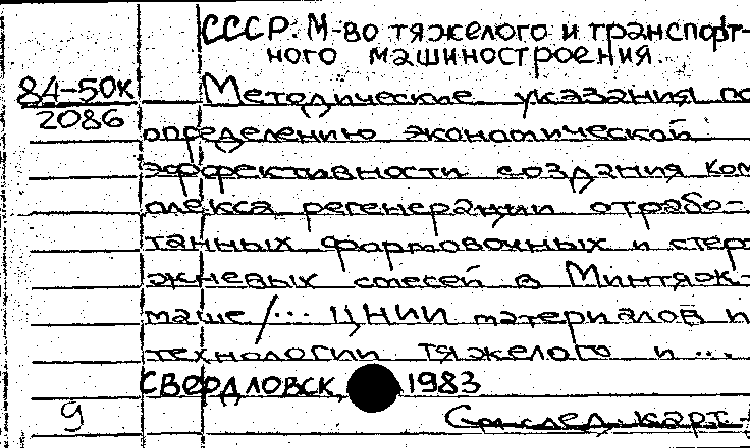 СССР. М-во тяжелого и транспорт-
ного машиностроения.
84-50к
2086
Методические указания по
определению экономической
эффективности создания ком
плекса регенерации отрабо-
танных формовочных и стер
жневых смесей в Минтяж-
маше /... ЦНИИ материалов и
технологии тяжелого и ...
Свердловск, 1983
9
См. след. карт.